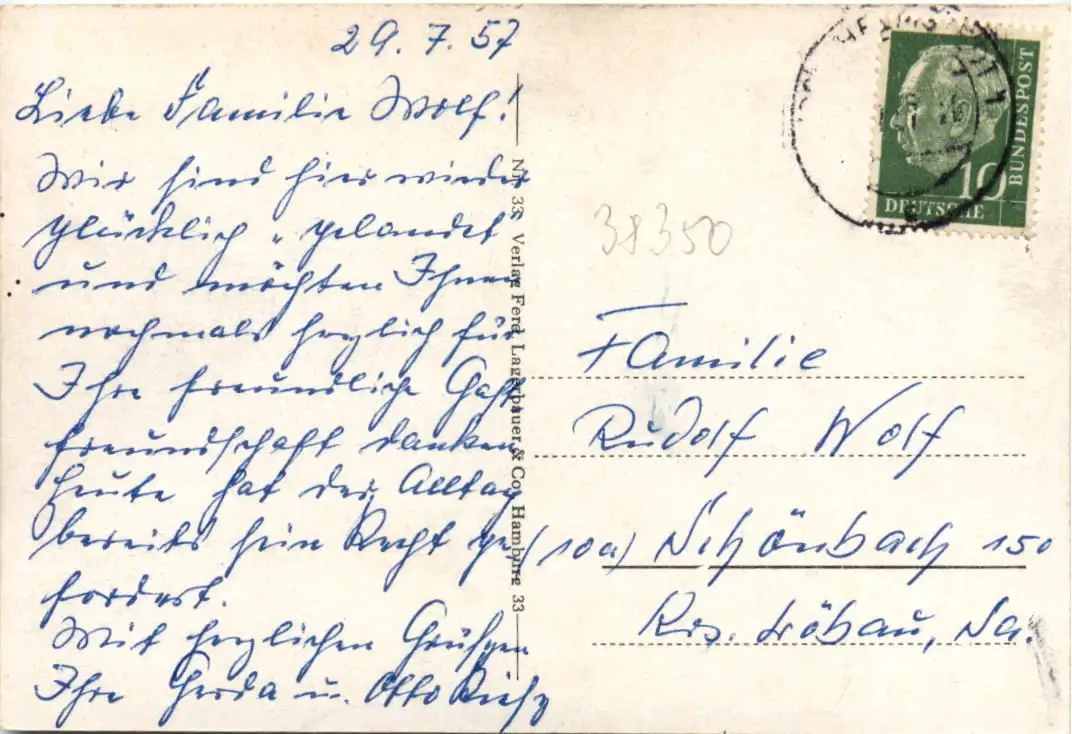 29. 7. 57
Liebe Familie Wolf!
Wir sind hier wieder
glücklich gelandet
und möchten Ihnen
nochmals herzlich für
Ihre freundliche Gast
freundschaft danken
Heute hat der Alltag
bereits sein Recht ge-
fordert.
Mit herzlichen Grüßen
Ihre Gerda u. Otto
Nr. 33 Verlag Ferd. Lagerbauer & Co, Hamburg 33
DEUTSCHE
BUNDESPOST
10
38350
Familie
Rudolf Wolf
(10a) Schönbach 150
Krs. Löbau, Sa.